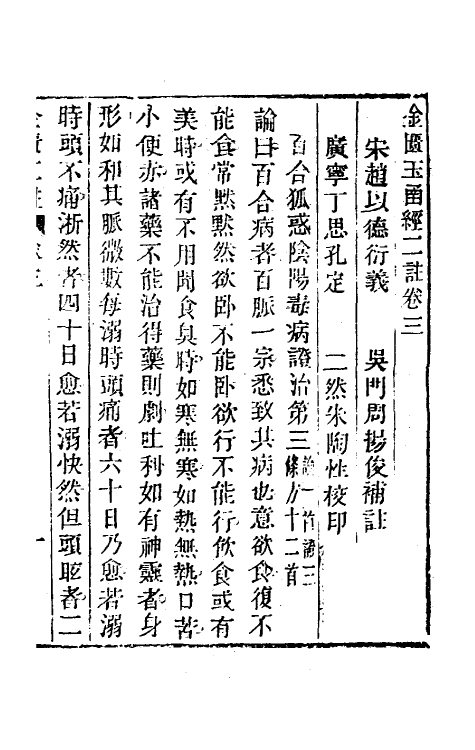 金匱玉函經二註卷三
宋趙以德衍義　吳門周揚俊補註
廣寧丁思孔定　二然朱陶性校印
百合狐惑陰陽毒病證治第三論一首證三條方十二首
論曰百合病者百脈一宗悉致其病也意欲食復不
能食常默默然欲卧不能卧欲行不能行飲食或有
美時或有不用聞食臭時如寒無寒如熱無熱口苦
小便赤諸藥不能治得藥則劇吐利如有神靈者身
形如和其脈微數每溺時頭痛者六十日乃愈若溺
時頭不痛淅然者四十日愈若溺快然但頭眩者二
一